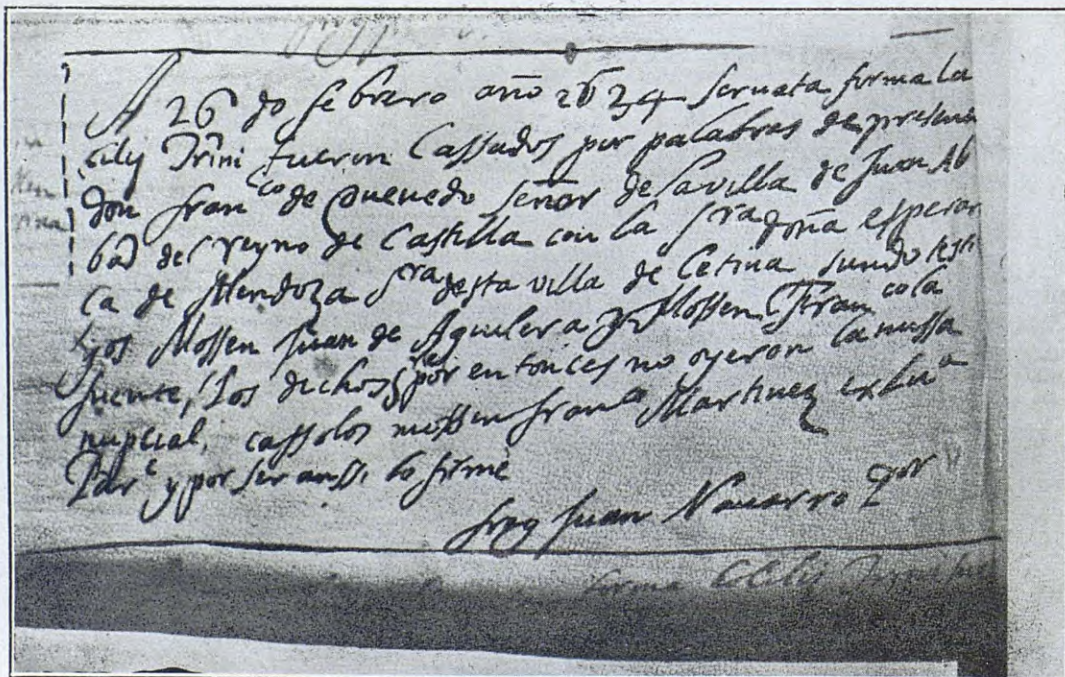 A 26 de febrero año 1634 seruata forma la
cilij Trini fueron Cassados por palabras de presente
don fran^co de queuedo señor de la villa de Juan Ab
bad del reyno de Castilla con la s^ra doña esperan
ca de Mendoza s^ra desta villa de Cetina siendo testi
gos Mossen Juan de Aguilera y Mossen Fran^co la
fuente, Los dichos s^res por entonces no oyeron la missa
nupcial, cassolos mossen fran^co Martinez ex lic^a
Par^e y por ser anssi lo firme
fray Juan Nauarro